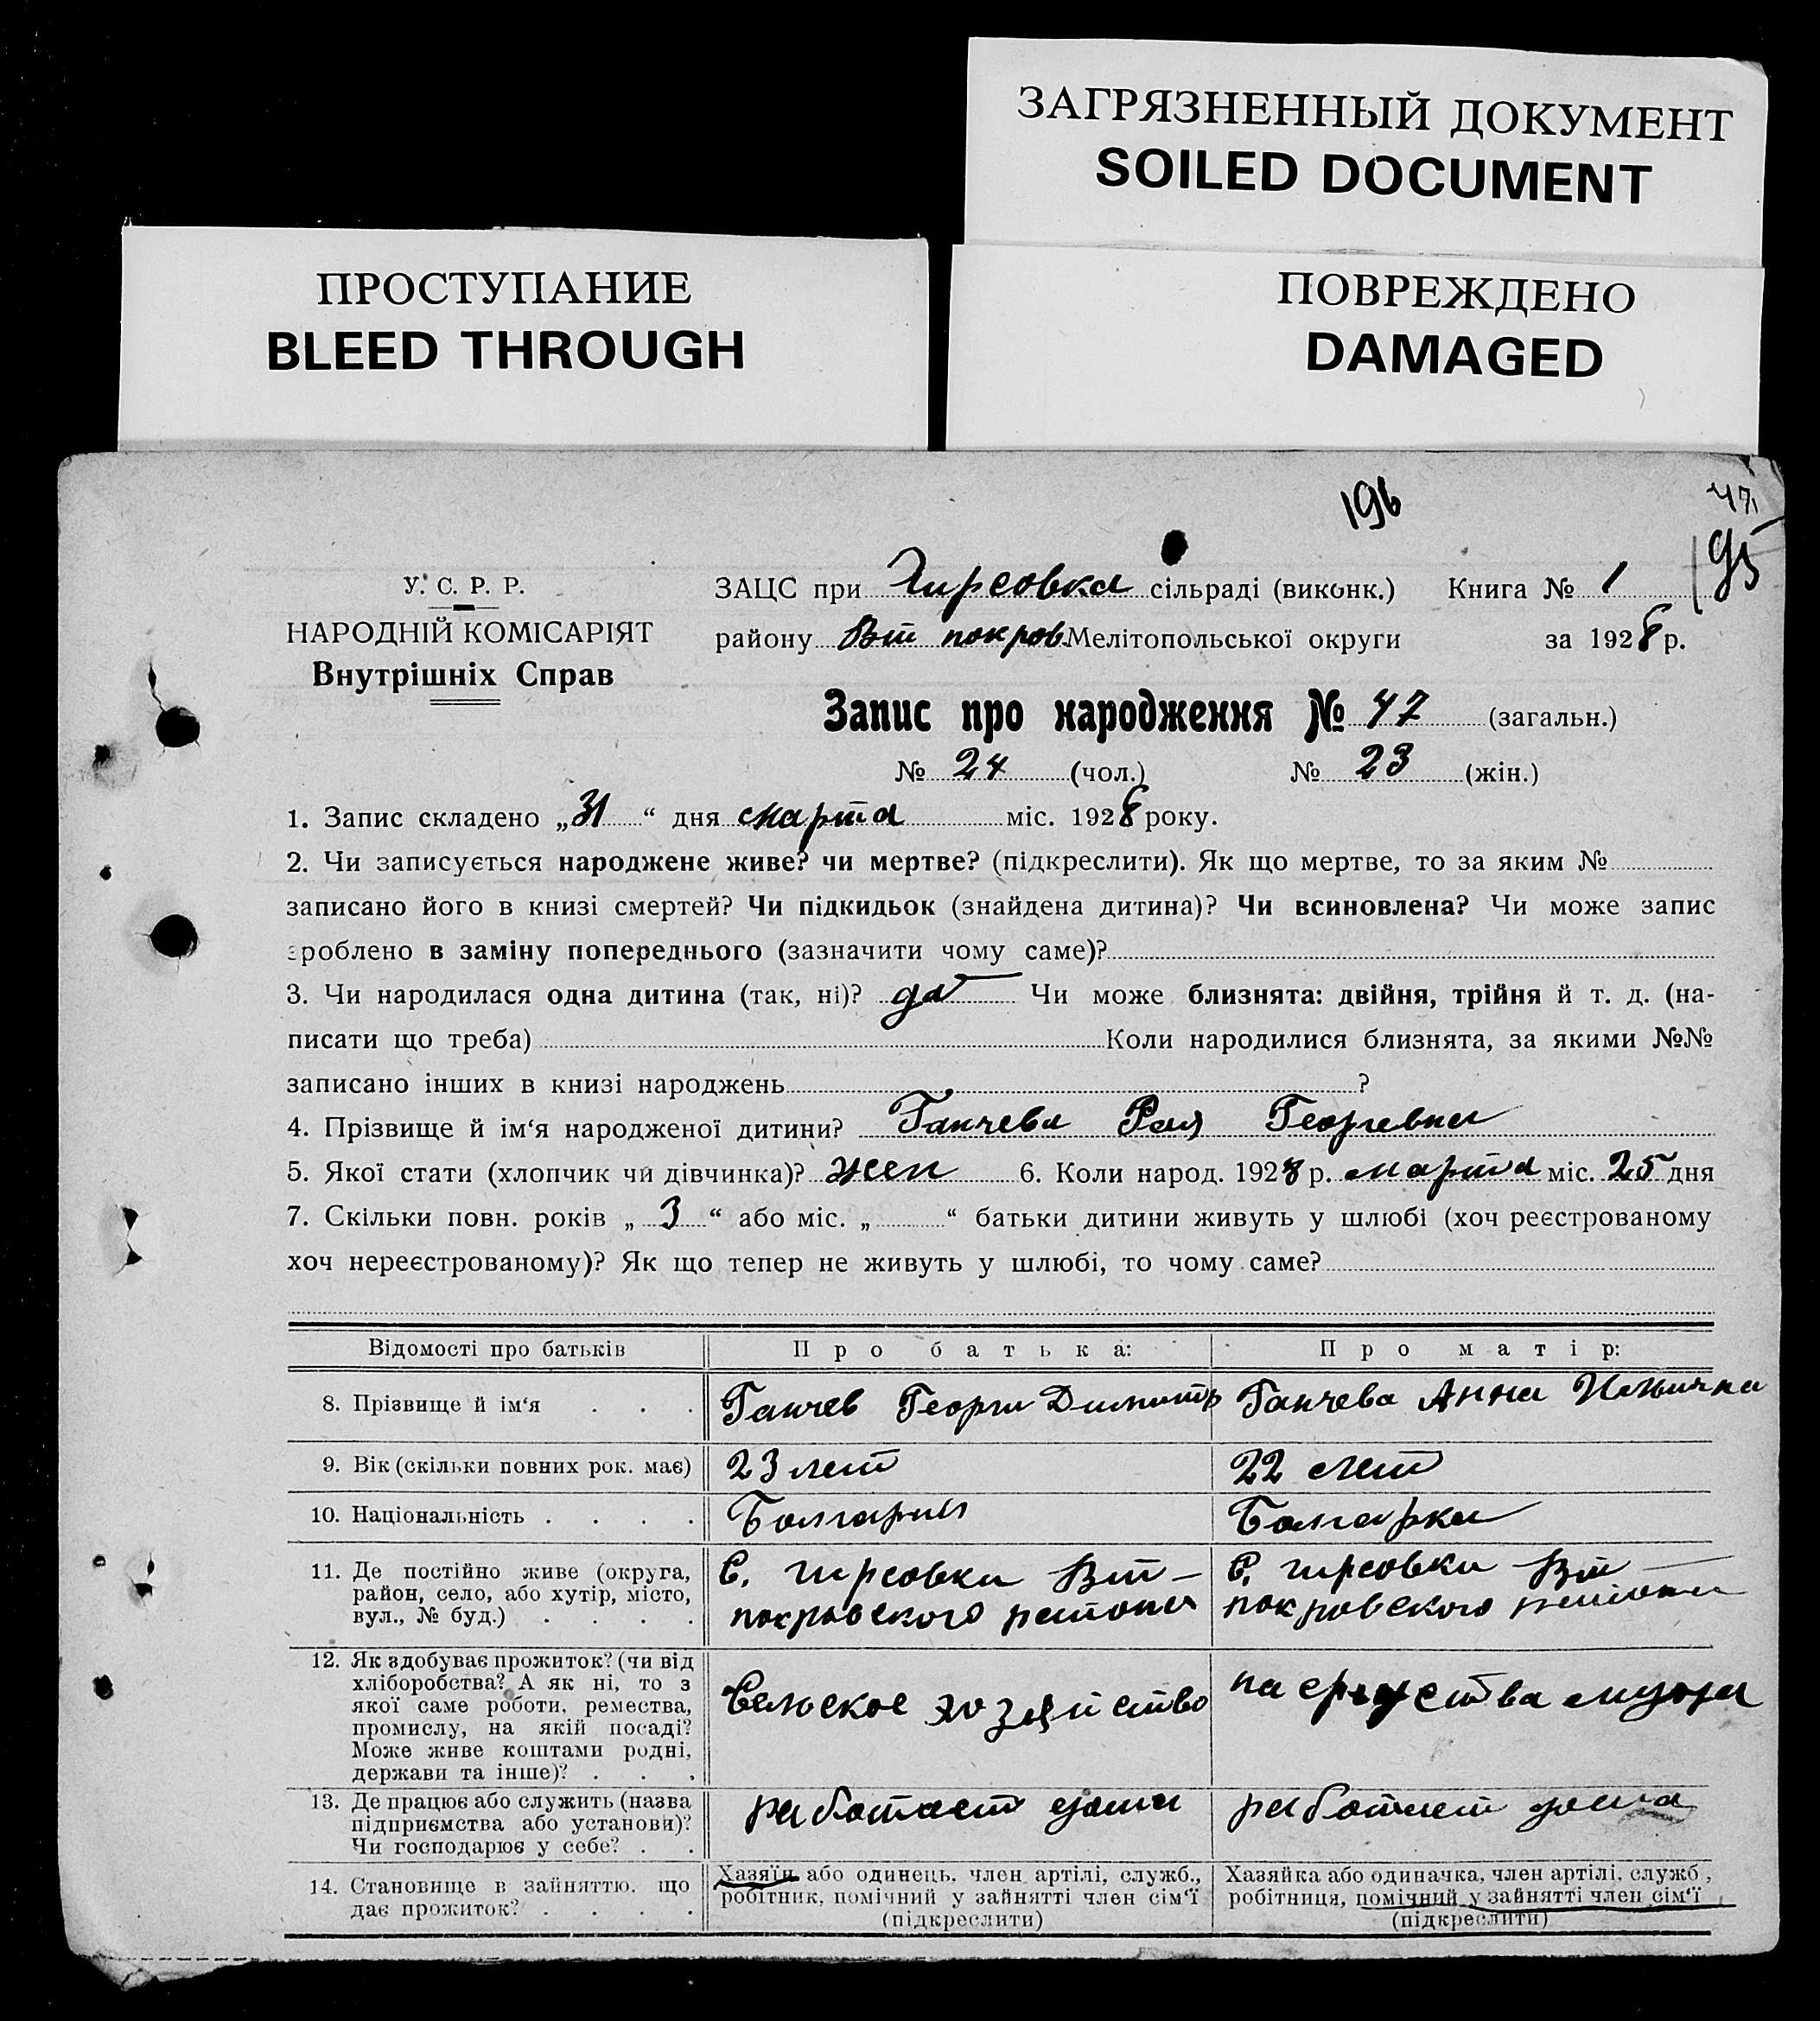 ЗАГРЯЗНЕННЫЙ ДОКУМЕНТ
SOILED DOCUMENT
ПРОСТУПАНИЕ
BLEED THROUGH
ПОВРЕЖДЕНО
DAMAGED
196
47
95
У. С. Р. Р.
НАРОДНІЙ КОМІСАРІЯТ
Внутрішніх Справ
ЗАЦС при Гирсовка сільраді (виконк.) Книга № 1
району Вт покров. Мелітопольської округи за 1928 р.
Запис про народження № 47 (загальн.)
№ 24 (чол.) № 23 (жін.)
1. Запис складено „31“ дня марта міс. 1928 року.
2. Чи записується народжене живе? чи мертве? (підкреслити). Як що мертве, то за яким №
записано його в книзі смертей? Чи підкидьок (знайдена дитина)? Чи всиновлена? Чи може запис
зроблено в заміну попереднього (зазначити чому саме)?
3. Чи народилася одна дитина (так, ні)? да Чи може близнята: двійня, трійня й т. д. (на-
писати що треба) Коли народилися близнята, за якими №№
записано інших в книзі народжень ?
4. Прізвище й ім‘я народженої дитини? Ганчева Рая Георгевна
5. Якої стати (хлопчик чи дівчинка)? жен 6. Коли народ. 1928 р. марта міс. 25 дня
7. Скільки повн. років „3“ або міс. „ “ батьки дитини живуть у шлюбі (хоч реєстрованому
хоч нереєстрованому)? Як що тепер не живуть у шлюбі, то чому саме?
Відомості про батьків Про батька: Про матір:
8. Прізвище й ім‘я . . . Ганчев Георги Димитр Ганчева Анна
9. Вік (скільки повних рок. має) 23 лет 22 лет
10. Національність . . . . Болгарин Болгарка
11. Де постійно живе (округа,
район, село, або хутір, місто,
вул., № буд.) . . . .
С. Гирсовки Вт-
покровского района
С. Гирсовки Вт
покровского района
12. Як здобуває прожиток? (чи від
хліборобства? А як ні, то з
якої саме роботи, ремества,
промислу, на якій посаді?
Може живе коштами родні,
держави та інше)? . . .
Сельское хозяйство
на средства мужа
13. Де працює або служить (назва
підприємства або установи)?
Чи господарює у себе? . .
работает дома
работает дома
14. Становище в зайняттю, що
дає прожиток? . . . .
Хазяїн або одинець, член артілі, служб.,
робітник, помічний у зайнятті член сім‘ї
(підкреслити)
Хазяйка або одиначка, член артілі, служб.,
робітниця, помічний у зайнятті член сім‘ї
(підкреслити)